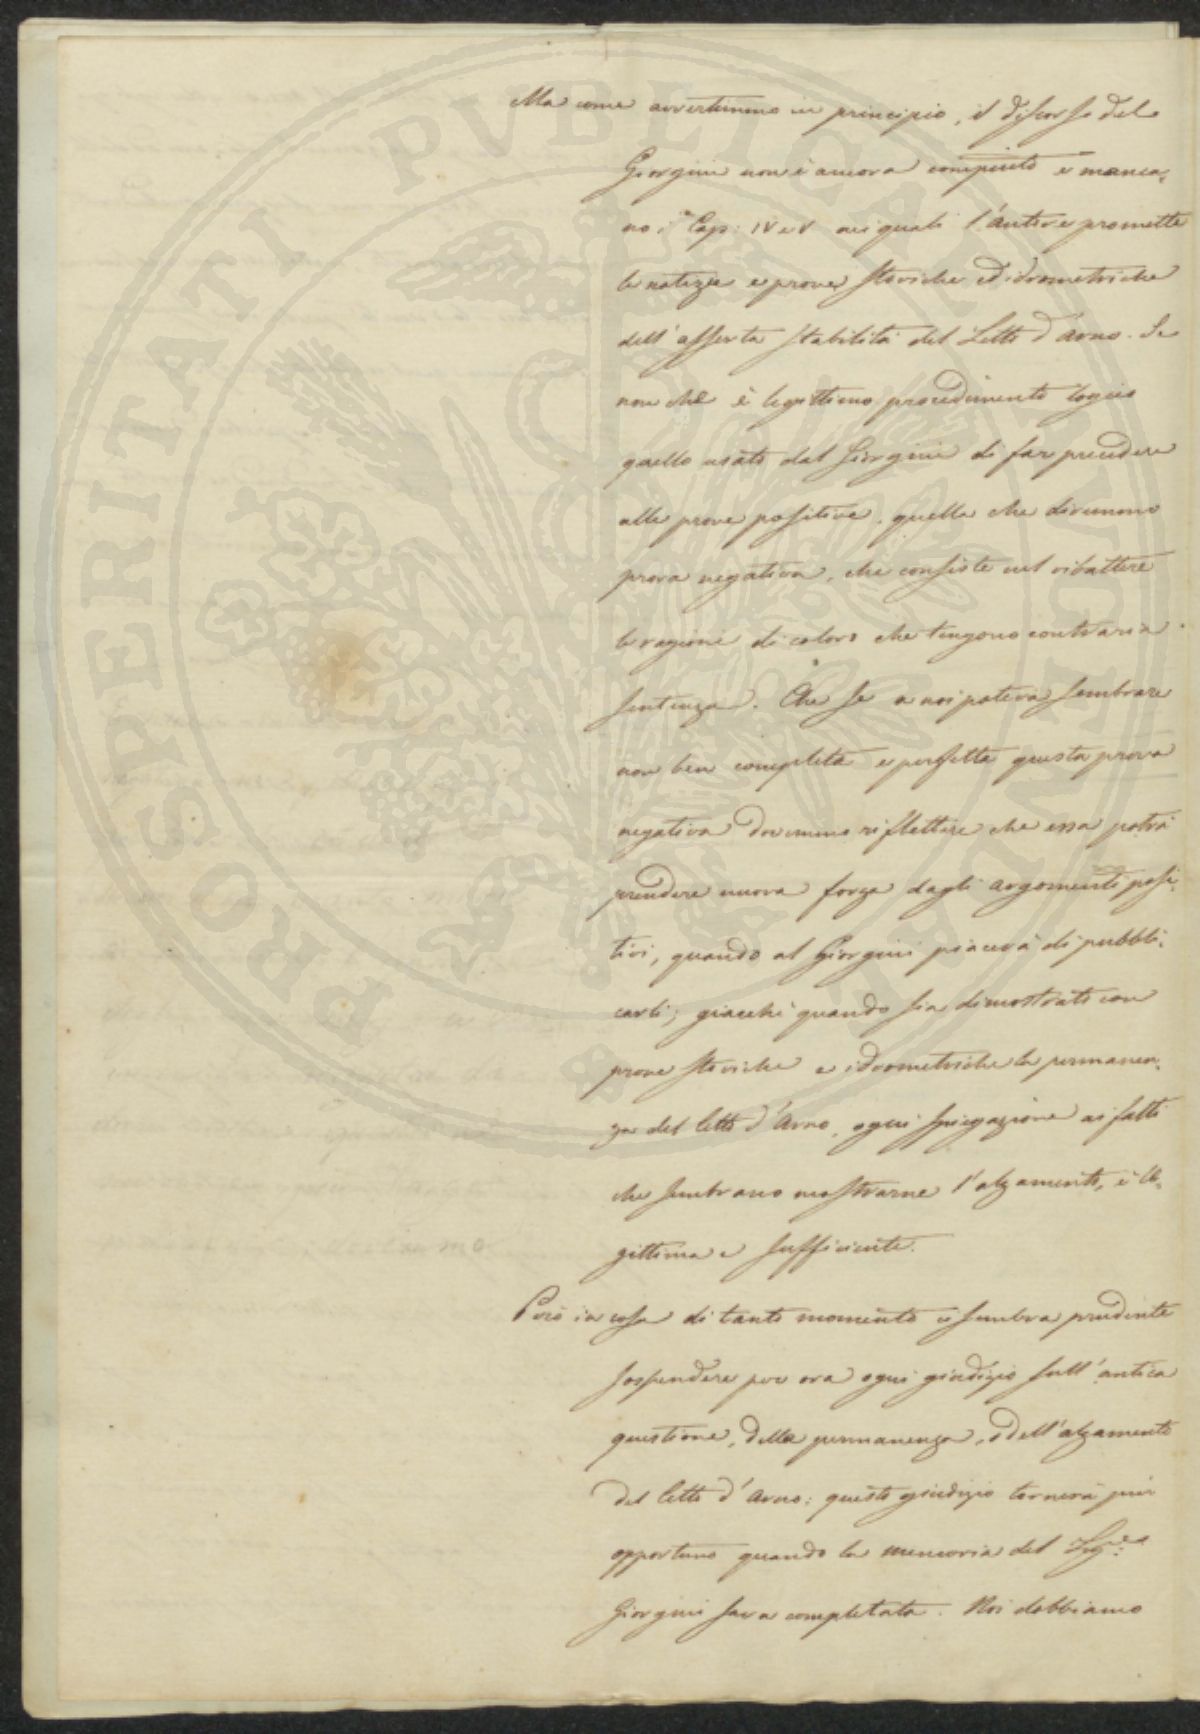 Ma come avvertimmo in principio, il discorso del
Giorgini non è ancora compiuto e manca,
no i Cap: IV e V nei quali l'Autore promette
le notizie e prove storiche ed idrometriche
dell'asserta stabilità del Letto d'Arno. Se
non che è legittimo procedimento logico
quello usato dal Giorgini di far precedere
alle prove positive, quella che diremmo
prova negativa, che consiste nel ribattere
le ragioni di coloro che tengono contraria
sentenza. Che se a noi poteva sembrare
non ben completa e perfetta questa prova
negativa dovemmo riflettere che essa potrà
prendere nuova forza dagli argomenti posi,
tivi, quando al Giorgini piacerà di pubbli,
carli; giacchè quando sia dimostrato con
prove storiche e idrometriche la permanen,
za del letto d'Arno, ogni spiegazione ai fatti
che sembrano mostrarne l'alzamento, è le,
gittima e sufficiente.
Però in cosa di tanto momento ci sembra prudente
sospendere per ora ogni giudizio sull'antica
questione, della permanenza, o dell'alzamento
del letto d'Arno: questo giudizio tornerà più
opportuno quando la memoria del Sig.re
Giorgini sarà completata. Noi dobbiamo
PROSPERITATI PVBLICAE AVGENDAE